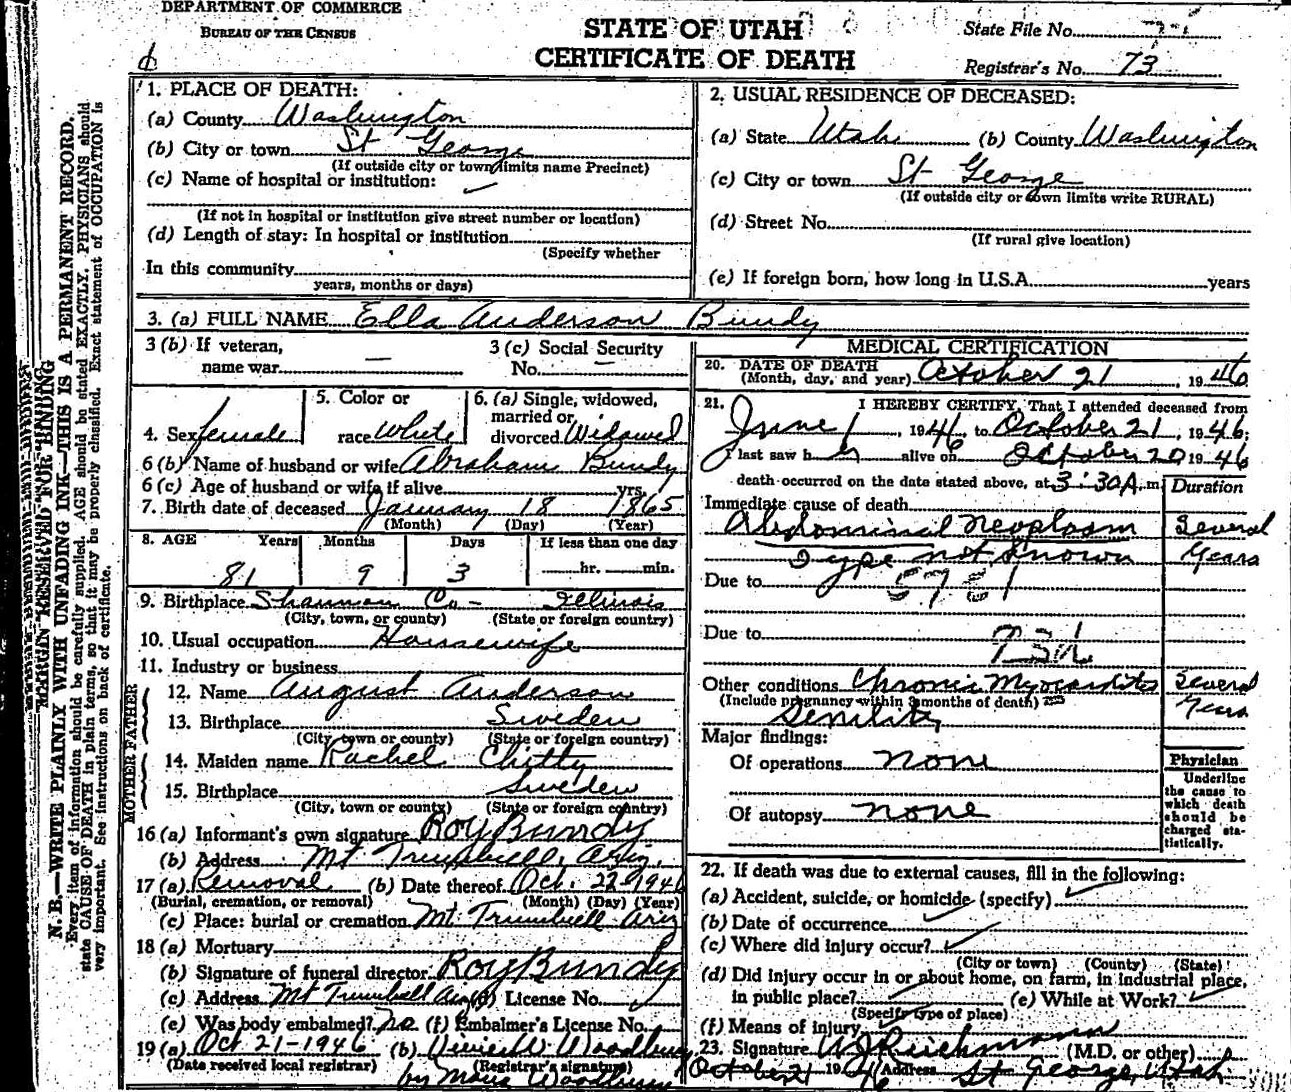 DEPARTMENT OF COMMERCE
BUREAU OF THE CENSUS
STATE OF UTAH
CERTIFICATE OF DEATH
State File No.
Registrar's No. 73
MARGIN RESERVED FOR BINDING
N. B.—WRITE PLAINLY WITH UNFADING INK—THIS IS A PERMANENT RECORD.
Every item of information should be carefully supplied. AGE should be stated EXACTLY. PHYSICIANS should
state CAUSE OF DEATH in plain terms, so that it may be properly classified. Exact statement of OCCUPATION is
very important. See instructions on back of certificate.
1. PLACE OF DEATH:
(a) County Washington
(b) City or town St George
(If outside city or town limits name Precinct)
(c) Name of hospital or institution:
(If not in hospital or institution give street number or location)
(d) Length of stay: In hospital or institution
(Specify whether
In this community
years, months or days)
2. USUAL RESIDENCE OF DECEASED:
(a) State Utah (b) County Washington
(c) City or town St George
(If outside city or town limits write RURAL)
(d) Street No.
(If rural give location)
(e) If foreign born, how long in U.S.A. years
3. (a) FULL NAME Ella Anderson Bundy
3 (b) If veteran,
name war —
3 (c) Social Security
No. —
4. Sex female
5. Color or
race White
6. (a) Single, widowed,
married or
divorced Widowed
6 (b) Name of husband or wife Abraham Bundy
6 (c) Age of husband or wife if alive yrs.
7. Birth date of deceased January 18 1865
(Month) (Day) (Year)
8. AGE Years Months Days If less than one day
81 9 3 hr. min.
9. Birthplace Shannon Co- Illinois
(City, town, or county) (State or foreign country)
10. Usual occupation Housewife
11. Industry or business
FATHER
12. Name August Anderson
13. Birthplace Sweden
(City town or county) (State or foreign country)
MOTHER
14. Maiden name Rachel Chitty
15. Birthplace Sweden
(City, town or county) (State or foreign country)
16 (a) Informant's own signature Roy Bundy
(b) Address Mt Trumbull, Ariz.
17 (a) Removal (b) Date thereof Oct. 22-1946
(Burial, cremation, or removal) (Month) (Day) (Year)
(c) Place: burial or cremation Mt Trumbull Ariz
18 (a) Mortuary
(b) Signature of funeral director Roy Bundy
(c) Address Mt Trumbull Ariz (d) License No.
(e) Was body embalmed? no (f) Embalmer's License No.
19 (a) Oct 21-1946 (b) Woodbury
(Date received local registrar) (Registrar's signature)
by Woodbury
MEDICAL CERTIFICATION
20. DATE OF DEATH
(Month, day, and year) October 21, 1946
21. I HEREBY CERTIFY, That I attended deceased from
June 1, 1946, to October 21, 1946;
I last saw her alive on October 20 1946
death occurred on the date stated above, at 3:30A. m.
Duration
Immediate cause of death
Abdominal Neoplasm Several
Type not Known Years
Due to
Due to
Other conditions Chronic Myocarditis Several
(Include pregnancy within 3 months of death)
Senility Years
Major findings:
Of operations none
Of autopsy none
Physician
Underline
the cause to
which death
should be
charged sta-
tistically.
22. If death was due to external causes, fill in the following:
(a) Accident, suicide, or homicide (specify)
(b) Date of occurrence
(c) Where did injury occur?
(City or town) (County) (State)
(d) Did injury occur in or about home, on farm, in industrial place,
in public place? (e) While at Work?
(Specify type of place)
(f) Means of injury
23. Signature Reichmann (M.D. or other)
October 21 1946 Address St George, Utah